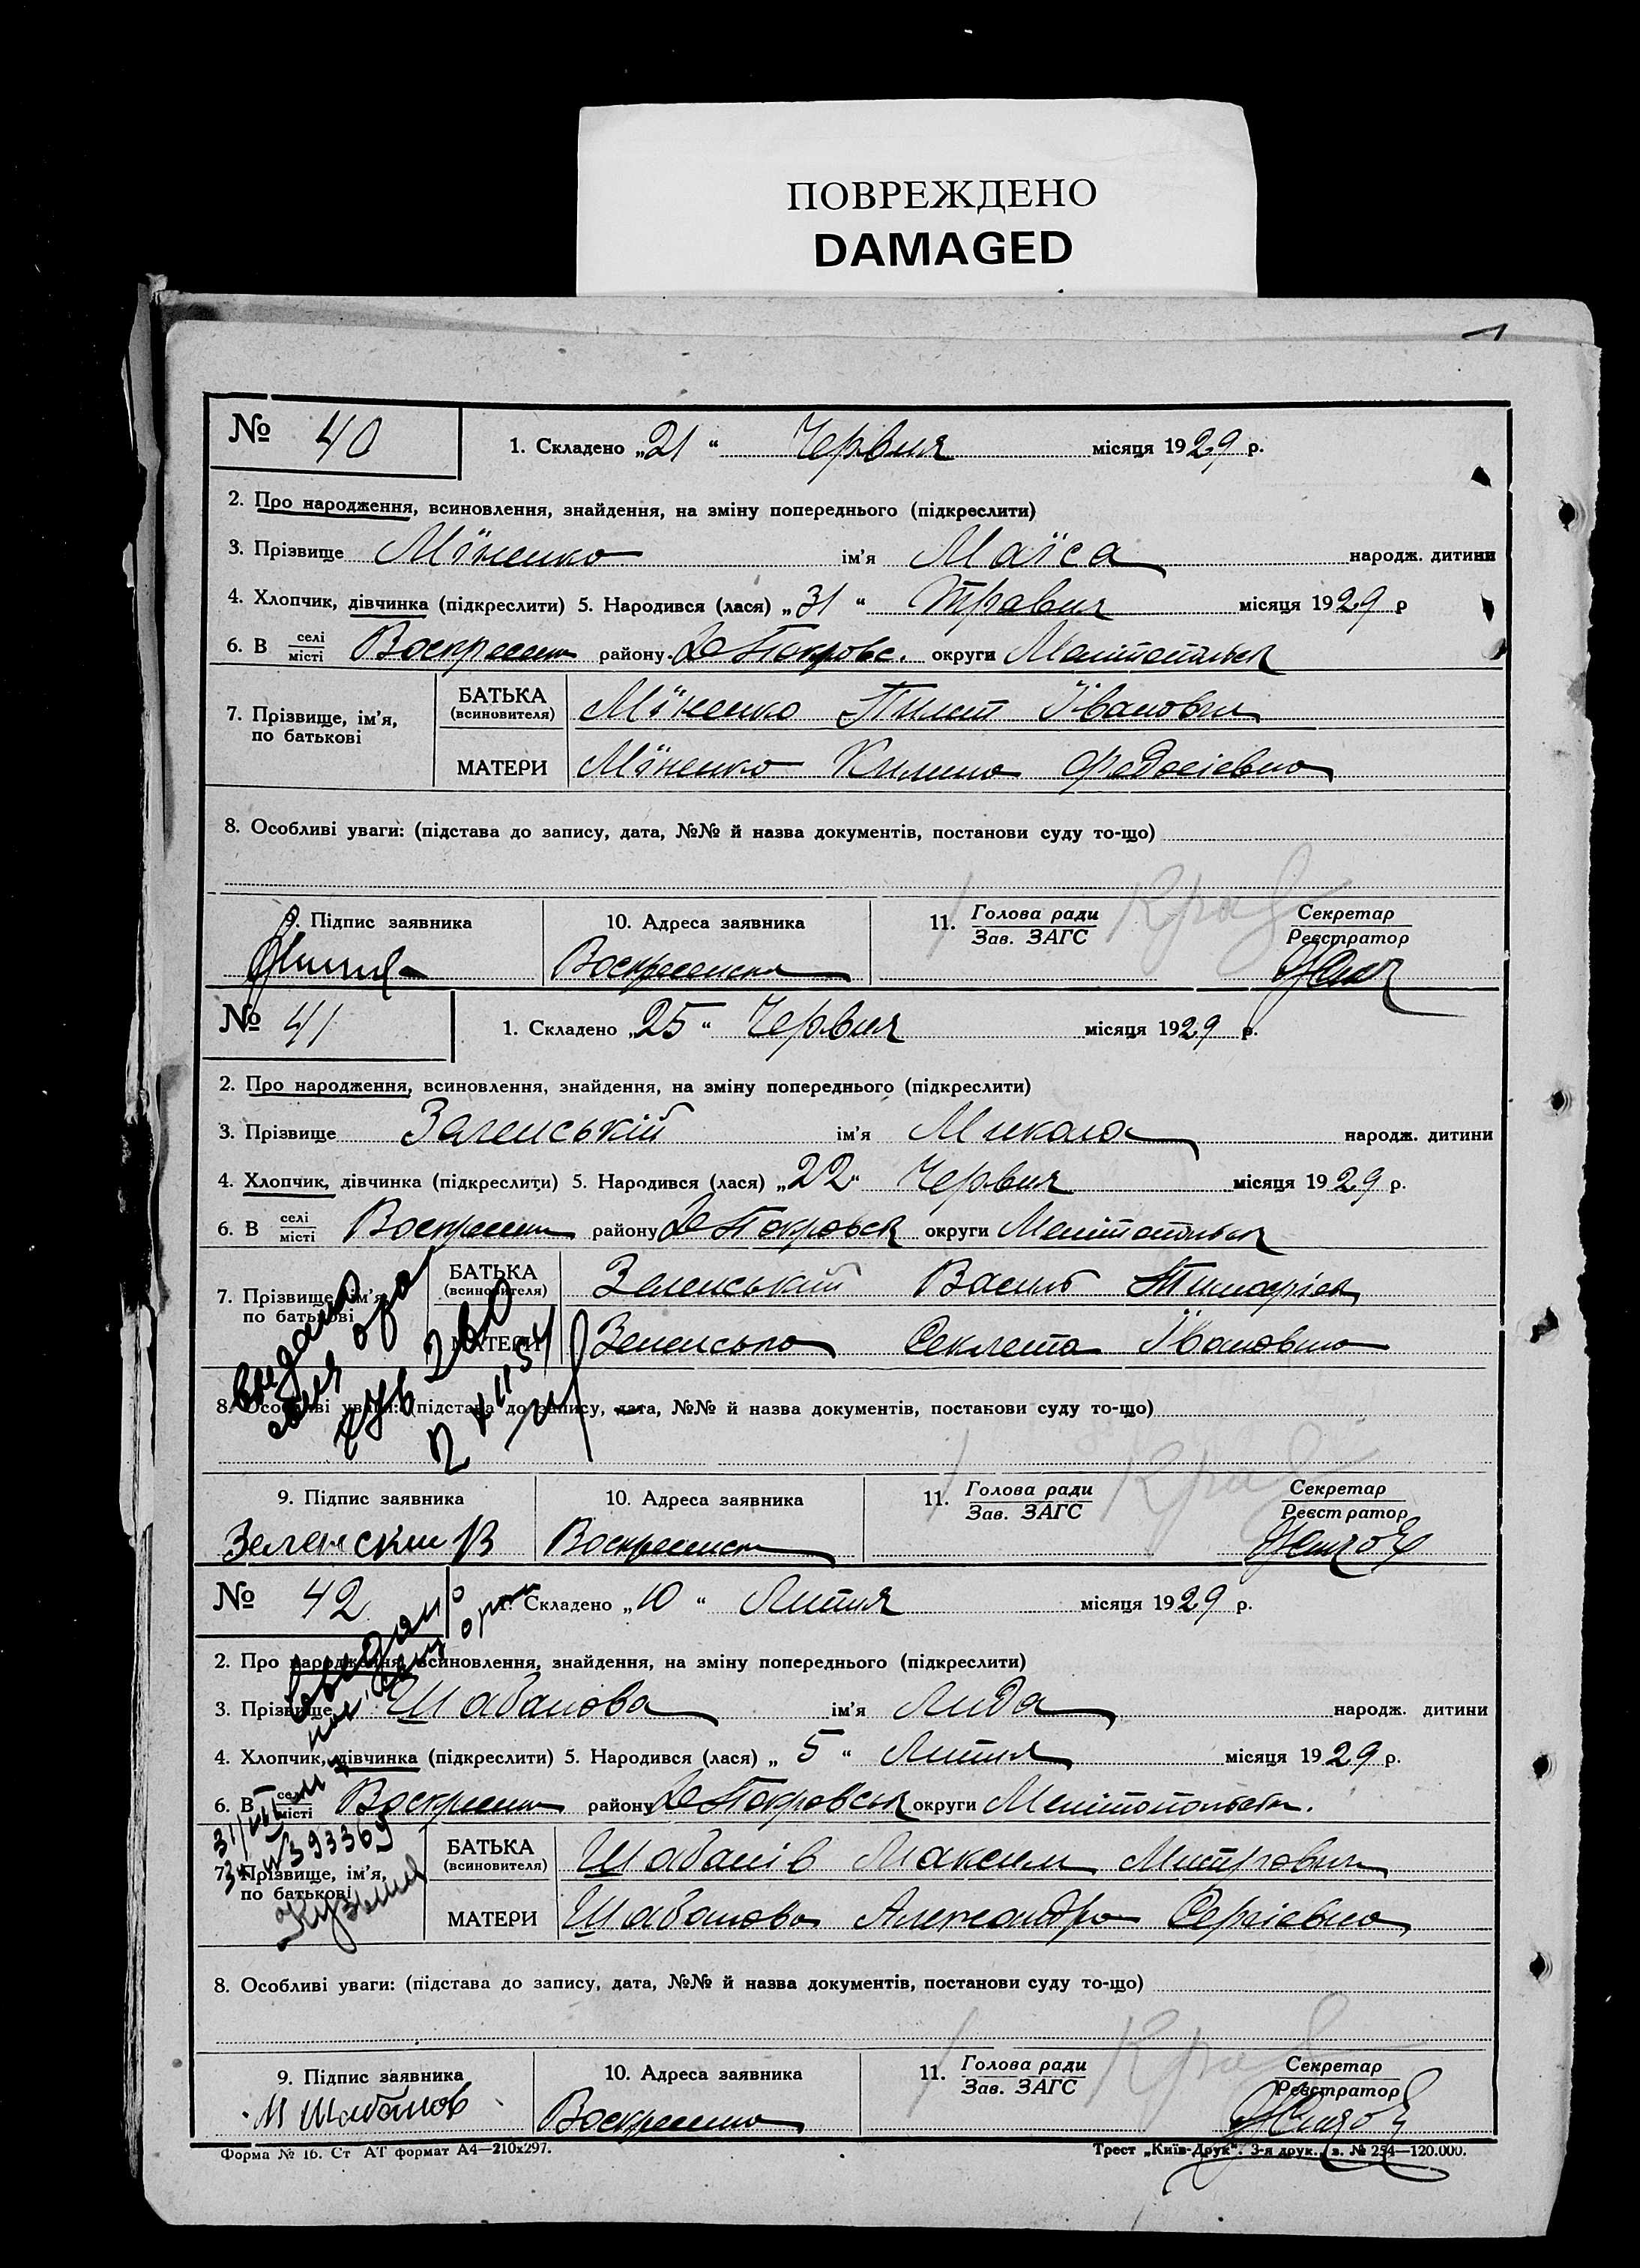 ПОВРЕЖДЕНО
DAMAGED
№ 40
1. Складено „21“ Червня місяця 1929 р.
2. Про народження, всиновлення, знайдення, на зміну попереднього (підкреслити)
3. Прізвище Міненко ім'я Маїса народж. дитини
4. Хлопчик, дівчинка (підкреслити) 5. Народився (лася) „31“ Травня місяця 1929 р
6. В селі місті Воскресен району В Покровс. округи Мелітопільск
7. Прізвище, ім'я, по батькові
БАТЬКА (всиновителя) Міненко Пилип Іванович
МАТЕРИ Міненко Килина Федосієвна
8. Особливі уваги: (підстава до запису, дата, №№ й назва документів, постанови суду то-що)
9. Підпис заявника 10. Адреса заявника 11. Голова ради Зав. ЗАГС Секретар Реєстратор
Воскресенка
№ 41
1. Складено „25“ Червня місяця 1929 р.
2. Про народження, всиновлення, знайдення, на зміну попереднього (підкреслити)
3. Прізвище Зеленській ім'я Микола народж. дитини
4. Хлопчик, дівчинка (підкреслити) 5. Народився (лася) „22“ Червня місяця 1929 р.
6. В селі місті Воскресен району Покровськ округи Мелітопільск
7. Прізвище, ім'я, по батькові
БАТЬКА (всиновителя) Зеленській Василь
МАТЕРИ Зеленська Секлета Івановна
8. Особливі уваги: (підстава до запису, дата, №№ й назва документів, постанови суду то-що)
9. Підпис заявника 10. Адреса заявника 11. Голова ради Зав. ЗАГС Секретар Реєстратор
Зеленский В Воскресенка
№ 42
1. Складено „10“ Липня місяця 1929 р.
2. Про народження, всиновлення, знайдення, на зміну попереднього (підкреслити)
3. Прізвище Шабанова ім'я Лида народж. дитини
4. Хлопчик, дівчинка (підкреслити) 5. Народився (лася) „5“ Липня місяця 1929 р.
6. В селі місті Воскресен району Покровськ округи Мелітопольськ.
7. Прізвище, ім'я, по батькові
№ 393369
БАТЬКА (всиновителя) Шабанів Максим Митрович
МАТЕРИ Шабанова Александра Сергієвна
8. Особливі уваги: (підстава до запису, дата, №№ й назва документів, постанови суду то-що)
9. Підпис заявника 10. Адреса заявника 11. Голова ради Зав. ЗАГС Секретар Реєстратор
М Шабанов Воскресенка
Форма № 16. Ст АТ формат А4—210х297. Трест „Київ-Друк“. 3-я друк., з. № 254—120.000.